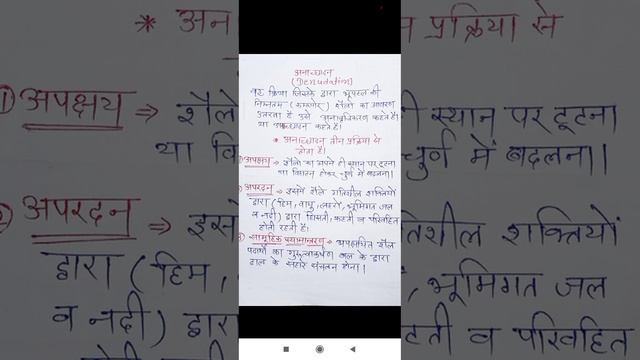 अनाच्छादन
(Denudation)
वह क्रिया जिसके द्वारा भूपटल की
निम्नतम (कमजोर) शैलों का आवरण
उतरता है उसे अनावृत्तिकरण कहते हैं।
या अनाच्छादन कहते हैं।
* अनाच्छादन तीन प्रक्रिया से
होता है।
① अपक्षय ⇒ शैलों का अपने ही स्थान पर टूटना
या विघटन होकर चूर्ण में बदलना।
अपरदन ⇒ इसमें शैलें गतिशील शक्तियों
द्वारा (हिम, वायु, लहरों, भूमिगत जल
व नदी) द्वारा घिसती, कटती व परिवहित
होती रहती है।
सामूहिक स्थानान्तरण ⇒ अपक्षयित शैल
पदार्थों का गुरुत्वाकर्षण बल के द्वारा
ढाल के सहारे संचलन होना।
* अना
न प्रक्रिया से
① अपक्षय ⇒ शैले
ी स्थान पर टूटना
या वि
चूर्ण में बदलना।
अपरदन ⇒ इस
तिशील शक्तियों
द्वारा (हिम,
भूमिगत जल
व नदी) द्वा
टती व परिवहित